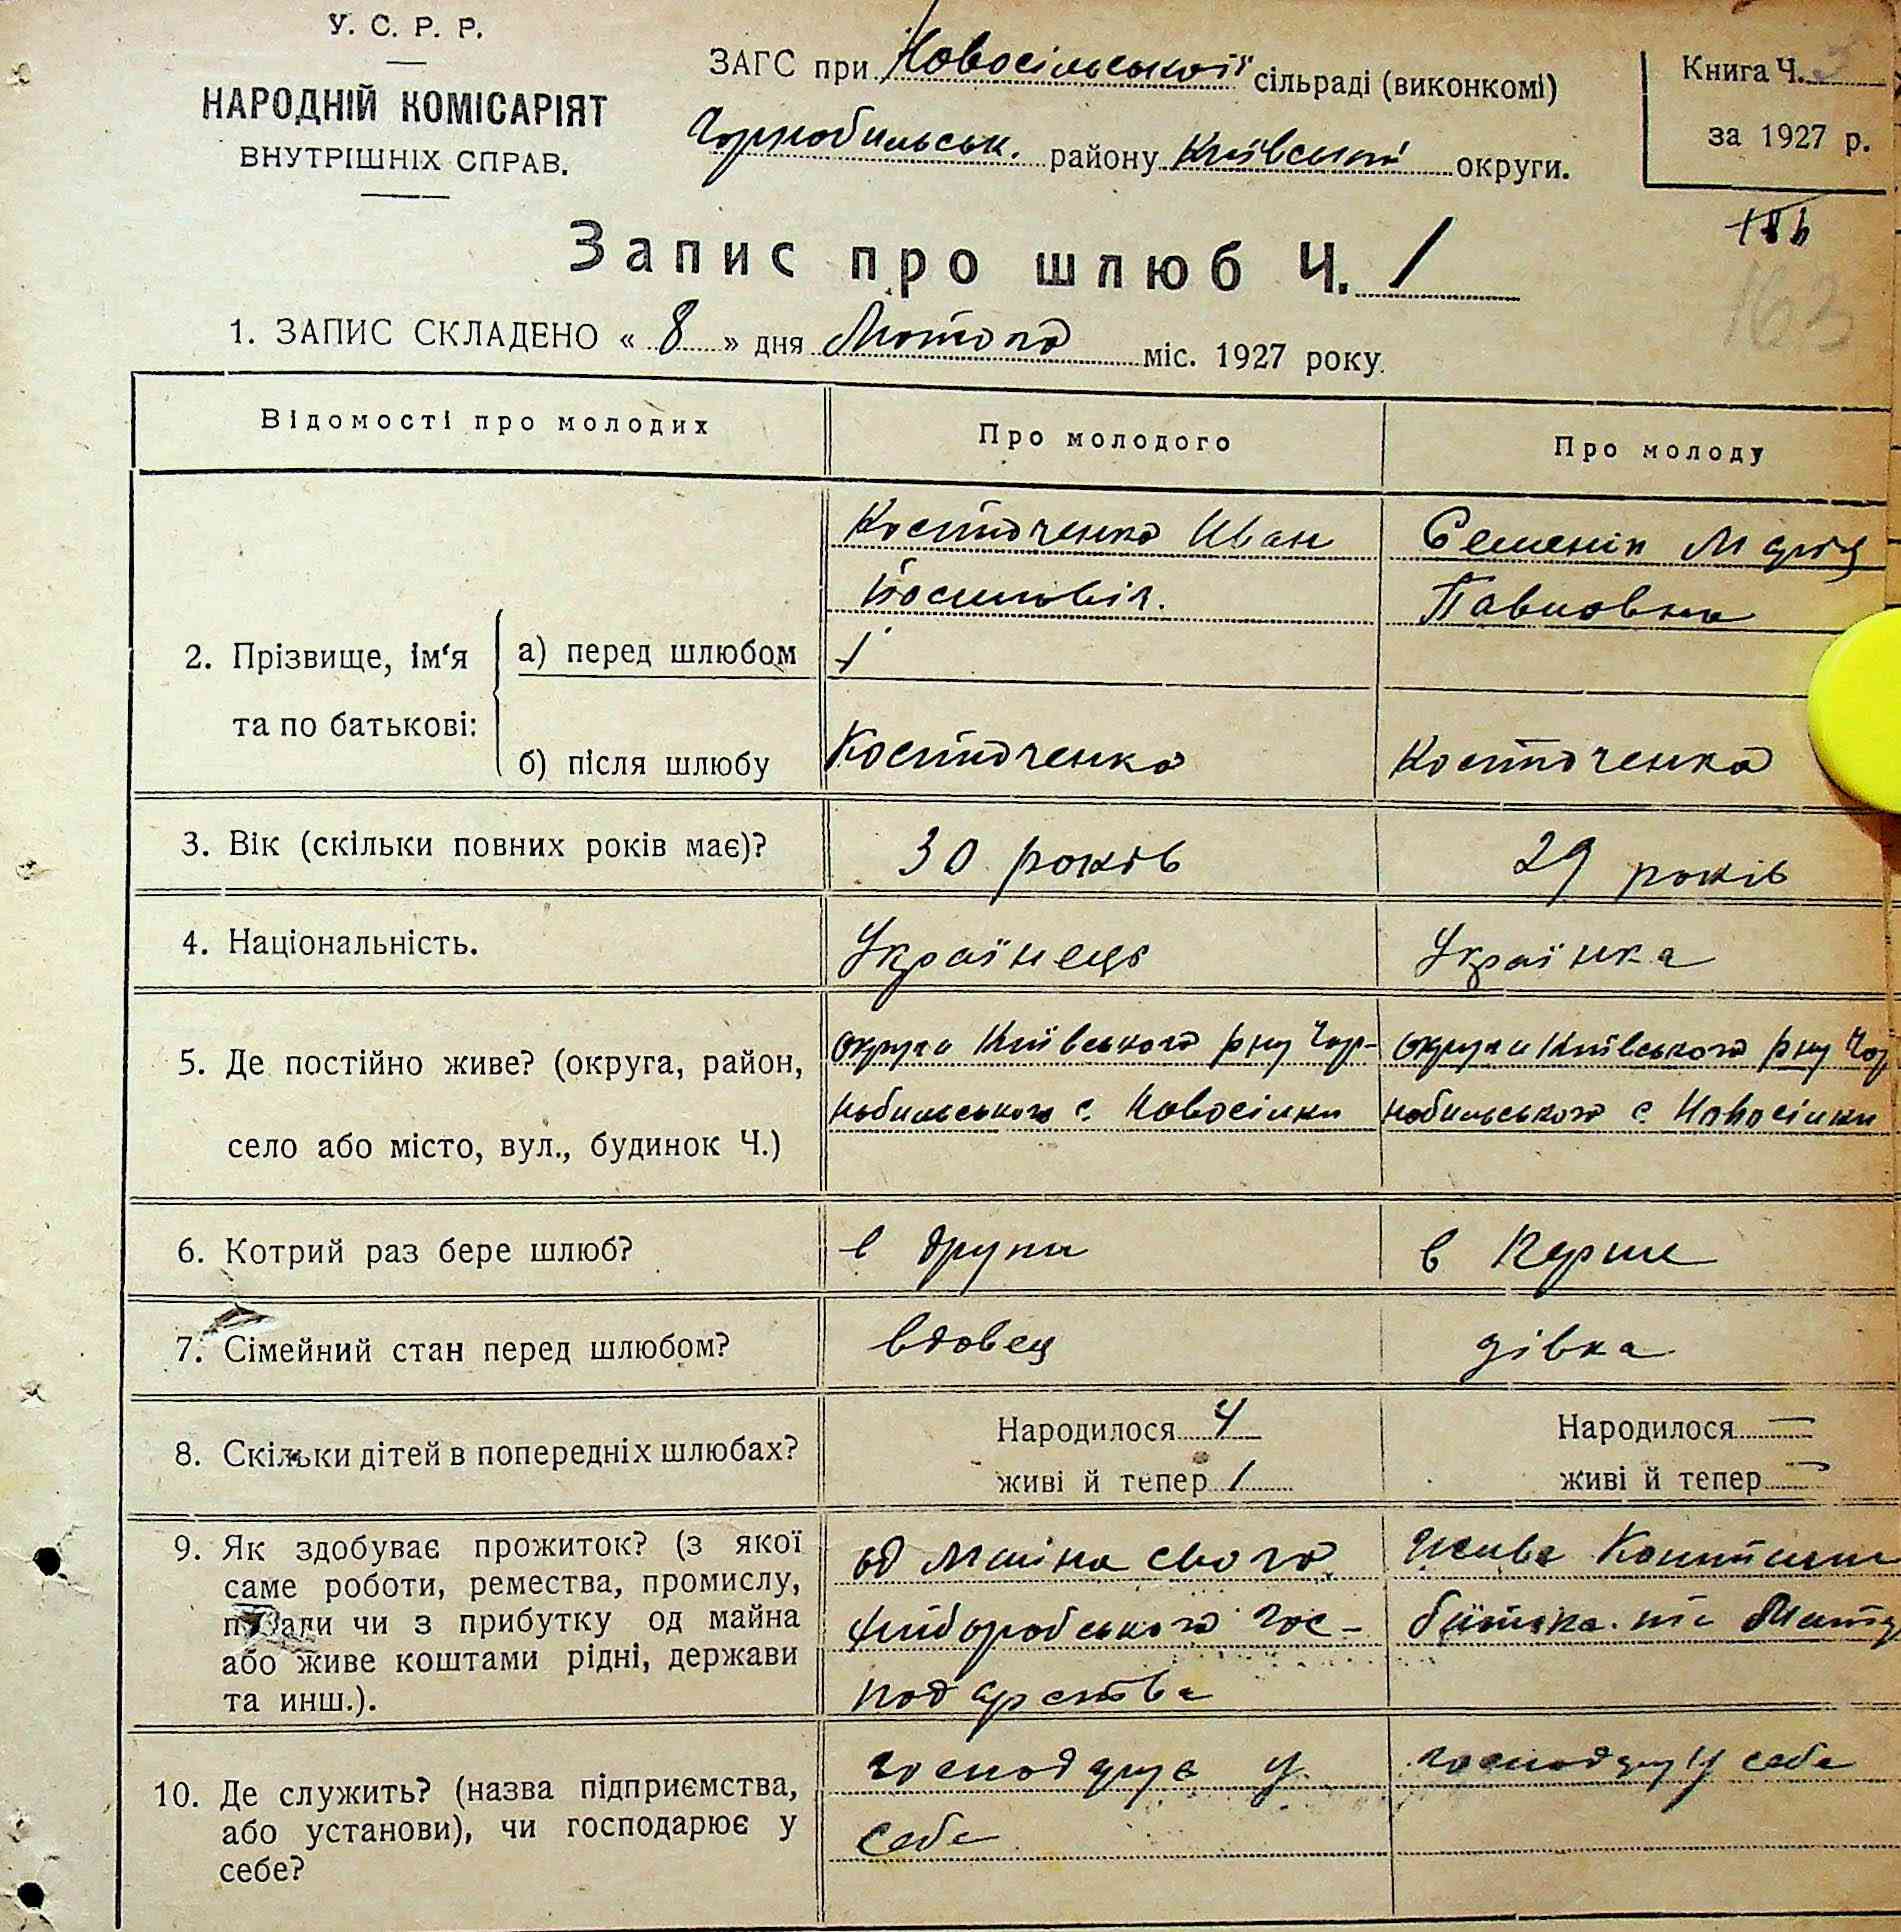 У. С. Р. Р.
НАРОДНІЙ КОМІСАРІЯТ
ВНУТРІШНІХ СПРАВ.
ЗАГС при Новосільської сільраді (виконкомі)
Чорнобильськ. району Київської округи.
Книга Ч.
за 1927 р.
163
Запис про шлюб Ч. 1
1. ЗАПИС СКЛАДЕНО « 8 » дня Лютого міс. 1927 року.
Відомості про молодих
Про молодого
Про молоду
2. Прізвище, ім‘я та по батькові:
а) перед шлюбом
Костюченко Иван
Семенік Марія
Павловна
б) після шлюбу
Костюченко
Костюченко
3. Вік (скільки повних років має)?
30 років
29 років
4. Національність.
Українець
Українка
5. Де постійно живе? (округа, район,
село або місто, вул., будинок Ч.)
округи Київського рну Чор-
нобильського с. Новосілки
округи Київського рну Чор
нобильського с. Новосілки
6. Котрий раз бере шлюб?
в други
в перше
7. Сімейний стан перед шлюбом?
вдовец
дівка
8. Скільки дітей в попередніх шлюбах?
Народилося 4
живі й тепер 1
Народилося —
живі й тепер —
9. Як здобуває прожиток? (з якої
саме роботи, ремества, промислу,
посади чи з прибутку од майна
або живе коштами рідні, держави
та инш.).
од майна свого
хліборобського гос-
подарства
живе коштами
батька та мати
10. Де служить? (назва підприємства,
або установи), чи господарює у
себе?
господарує у
себе
господару у себе